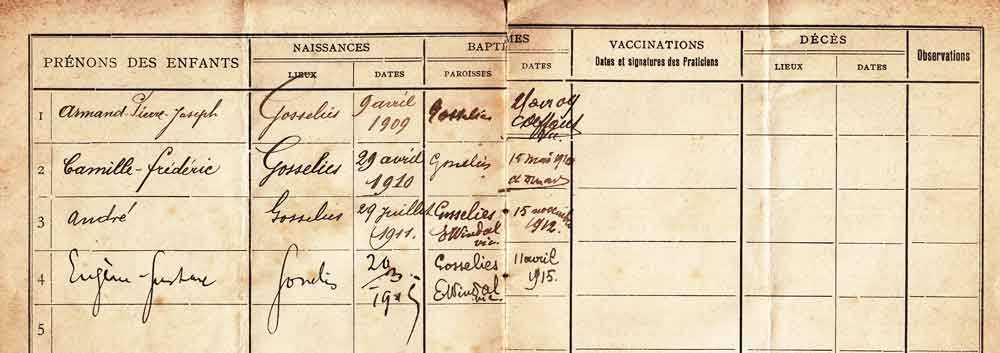 PRÉNOMS DES ENFANTS NAISSANCES BAPTÊMES VACCINATIONS DÉCÈS Observations
LIEUX DATES PAROISSES DATES Dates et signatures des Praticiens LIEUX DATES
1 Armand-Pierre-Joseph Gosselies 9 avril Gosselies
1909
2 Camille-frédéric Gosselies 29 avril Gosselies 15 mai 1910
1910
3 André Gosselies 29 juillet Gosselies 15 novembre
1911 EWindal vic. 1912.
4 Eugène-Gustave Gosselies 20 Gosselies 11 avril
3 EWindal vic 1915.
1915
5